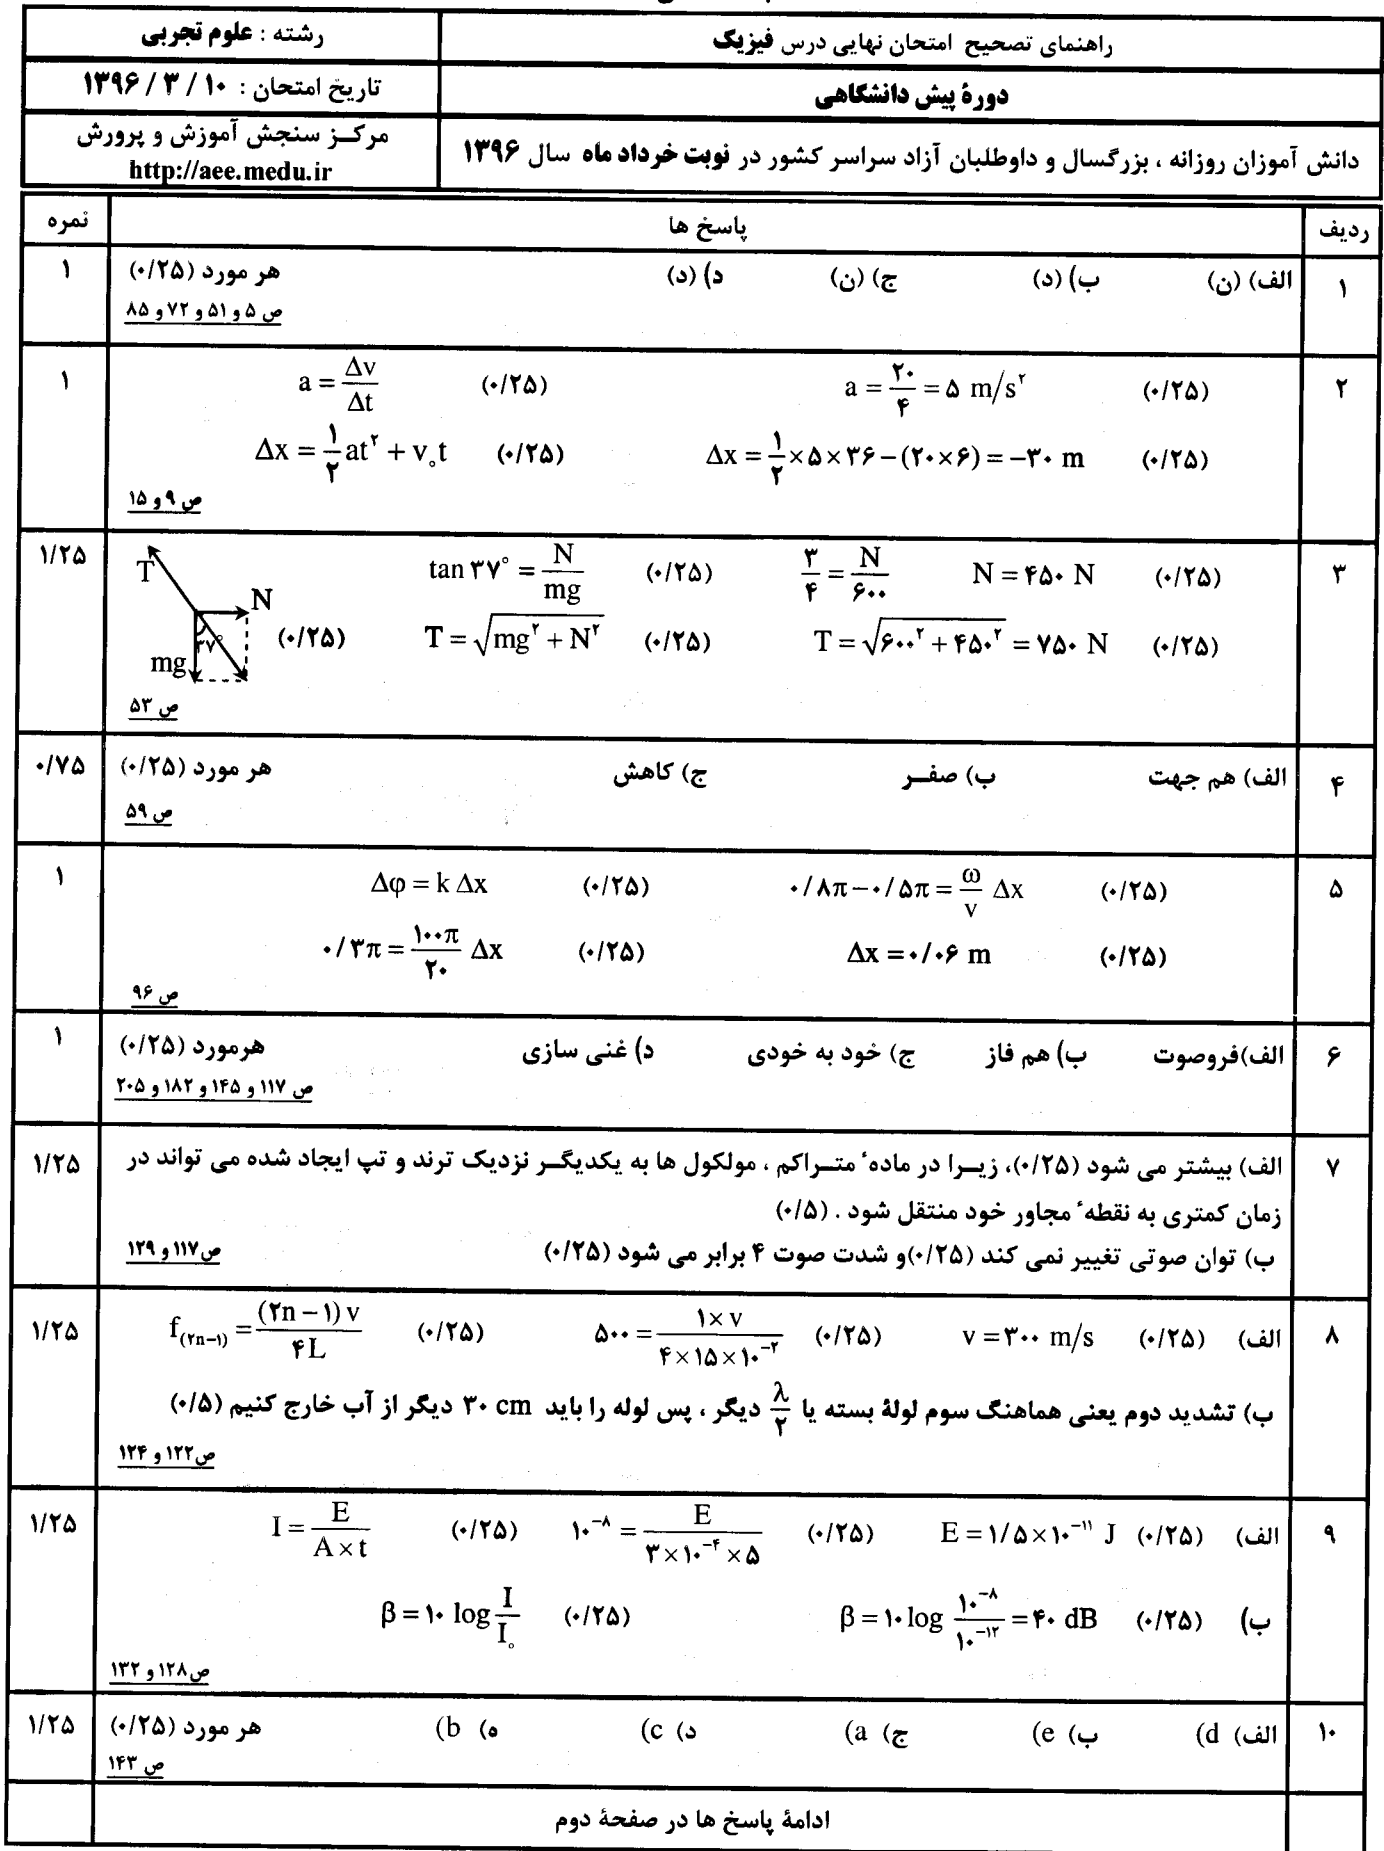 راهنمای تصحیح امتحان نهایی درس فیزیک
رشته : علوم تجربی
دورهٔ پیش دانشگاهی
تاریخ امتحان : ۱۰ / ۳ / ۱۳۹۶
دانش آموزان روزانه ، بزرگسال و داوطلبان آزاد سراسر کشور در نوبت خرداد ماه سال ۱۳۹۶
مرکــز سنجش آموزش و پرورش
http://aee.medu.ir
ردیف پاسخ ها نمره
۱ الف) (ن) ب) (د) ج) (ن) د) (د) هر مورد (۰/۲۵) ۱
ص ۵ و ۵۱ و ۷۲ و ۸۵
۲ a = Δv/Δt (۰/۲۵) a = ۲۰/۴ = ۵ m/s² (۰/۲۵) ۱
Δx = ۱/۲ at² + v₀t (۰/۲۵) Δx = ۱/۲ × ۵ × ۳۶ − (۲۰ × ۶) = −۳۰ m (۰/۲۵)
ص ۹ و ۱۵
۳ T N mg ۳۷° (۰/۲۵) tan ۳۷° = N/mg (۰/۲۵) ۳/۴ = N/۶۰۰ N = ۴۵۰ N (۰/۲۵) ۱/۲۵
T = √(mg² + N²) (۰/۲۵) T = √(۶۰۰² + ۴۵۰²) = ۷۵۰ N (۰/۲۵)
ص ۵۳
۴ الف) هم جهت ب) صفــر ج) کاهش هر مورد (۰/۲۵) ۰/۷۵
ص ۵۹
۵ Δφ = k Δx (۰/۲۵) ۰/۸π − ۰/۵π = ω/v Δx (۰/۲۵) ۱
۰/۳π = ۱۰۰π/۲۰ Δx (۰/۲۵) Δx = ۰/۰۶ m (۰/۲۵)
ص ۹۶
۶ الف)فروصوت ب) هم فاز ج) خود به خودی د) غنی سازی هرمورد (۰/۲۵) ۱
ص ۱۱۷ و ۱۴۵ و ۱۸۲ و ۲۰۵
۷ الف) بیشتر می شود (۰/۲۵)، زیــرا در مادهٔ متــراکم ، مولکول ها به یکدیگــر نزدیک ترند و تپ ایجاد شده می تواند در ۱/۲۵
زمان کمتری به نقطهٔ مجاور خود منتقل شود . (۰/۵)
ب) توان صوتی تغییر نمی کند (۰/۲۵)و شدت صوت ۴ برابر می شود (۰/۲۵)
ص۱۱۷ و ۱۲۹
۸ الف) f(۲n−۱) = (۲n − ۱) v/۴L (۰/۲۵) ۵۰۰ = ۱ × v/۴ × ۱۵ × ۱۰⁻² (۰/۲۵) v = ۳۰۰ m/s (۰/۲۵) ۱/۲۵
ب) تشدید دوم یعنی هماهنگ سوم لولهٔ بسته یا λ/۲ دیگر ، پس لوله را باید ۳۰ cm دیگر از آب خارج کنیم (۰/۵)
ص۱۲۲ و ۱۲۴
۹ الف) I = E/A × t (۰/۲۵) ۱۰⁻⁸ = E/۳ × ۱۰⁻⁴ × ۵ (۰/۲۵) E = ۱/۵ × ۱۰⁻¹¹ J (۰/۲۵) ۱/۲۵
ب) β = ۱۰ log I/I₀ (۰/۲۵) β = ۱۰ log ۱۰⁻⁸/۱۰⁻¹² = ۴۰ dB (۰/۲۵)
ص۱۲۸ و ۱۳۲
۱۰ الف) d) ب) e) ج) a) د) c) ه) b) هر مورد (۰/۲۵) ۱/۲۵
ص ۱۴۳
ادامهٔ پاسخ ها در صفحهٔ دوم